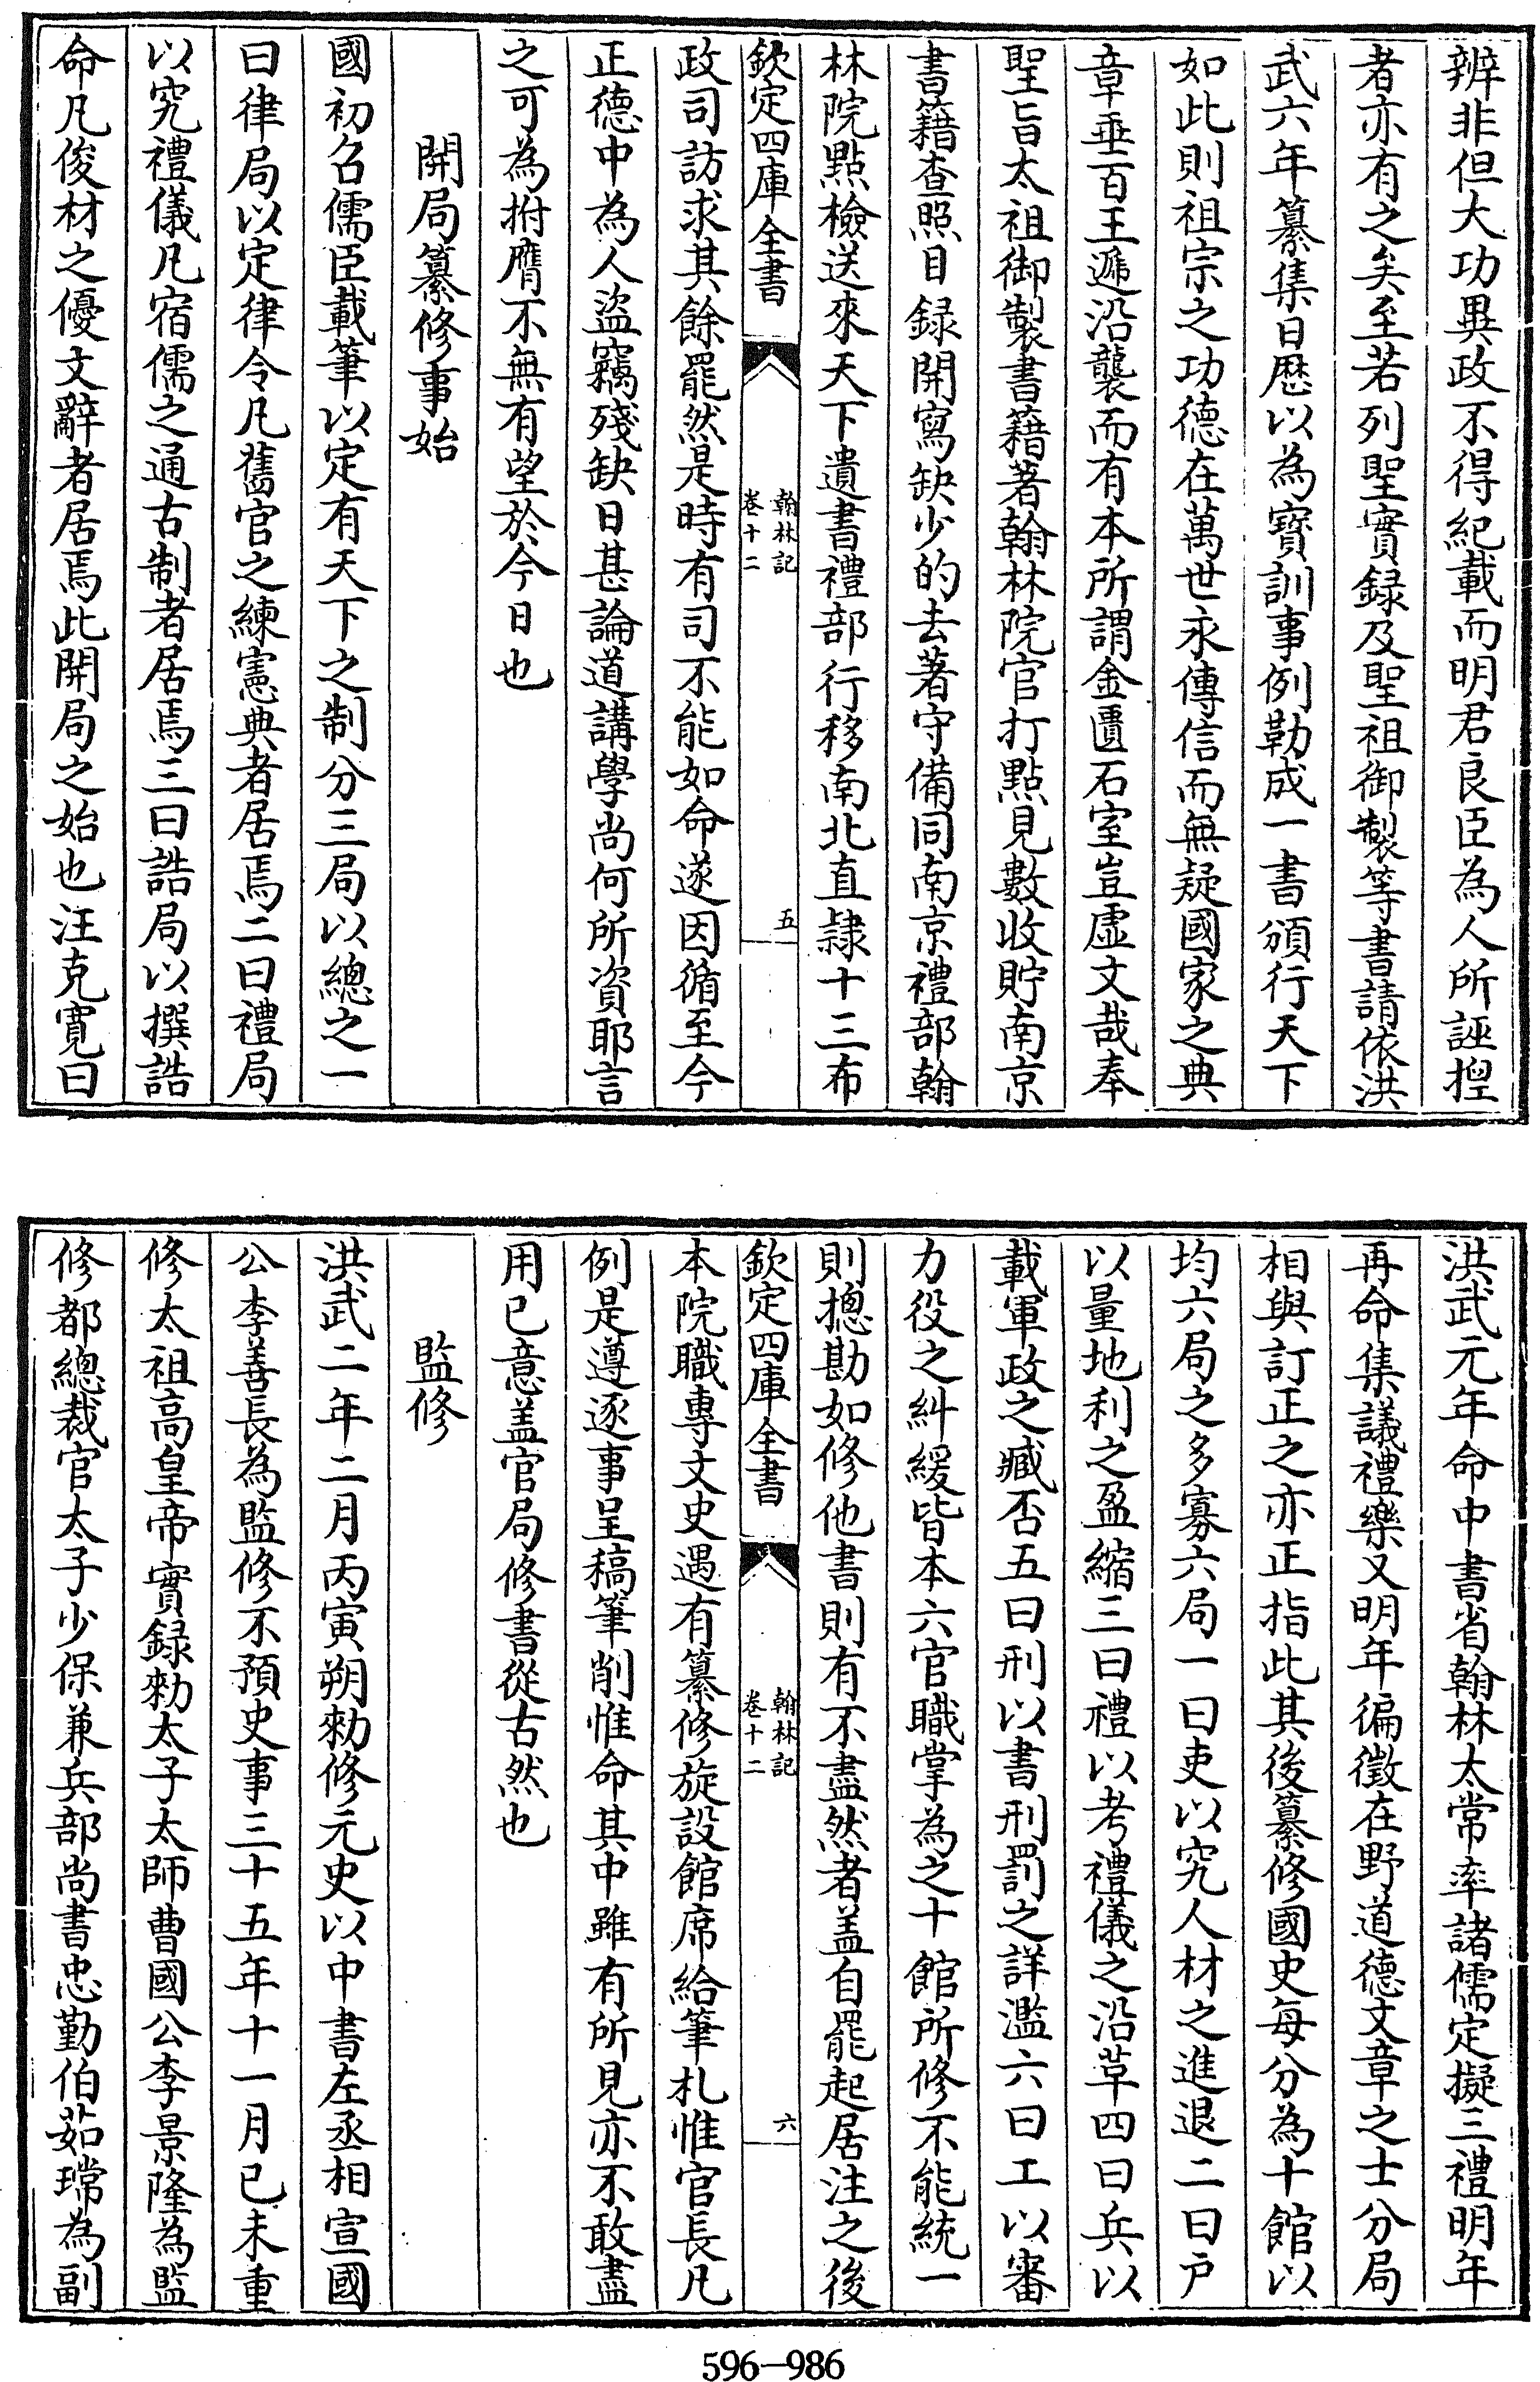 辨非但大功異政不得紀載而明君良臣為人所誣揑
者亦有之矣至若列聖實録及聖祖御製等書請依洪
武六年纂集日厯以為寶訓事例勒成一書頒行天下
如此則祖宗之功德在萬世永傳信而無疑國家之典
章垂百王遞沿襲而有本所謂金匱石室豈虛文哉奉
聖旨太祖御製書籍著翰林院官打點見數收貯南京
書籍查照目録開寫缺少的去著守備同南京禮部翰
林院點檢送來天下遺書禮部行移南北直隸十三布
欽定四庫全書
翰林記
卷十二
五
政司訪求其餘罷然是時有司不能如命遂因循至今
正德中為人盜竊殘缺日甚論道講學尚何所資耶言
之可為拊膺不無有望於今日也
開局纂修事始
國初召儒臣載筆以定有天下之制分三局以總之一
曰律局以定律令凡舊官之練憲典者居焉二曰禮局
以究禮儀凡宿儒之通古制者居焉三曰誥局以撰誥
命凡俊材之優文辭者居焉此開局之始也汪克寛曰
洪武元年命中書省翰林太常率諸儒定擬三禮明年
再命集議禮樂又明年徧徵在野道德文章之士分局
相與訂正之亦正指此其後纂修國史每分為十館以
均六局之多寡六局一曰吏以究人材之進退二曰戶
以量地利之盈縮三曰禮以考禮儀之沿革四曰兵以
載軍政之臧否五曰刑以書刑罰之詳濫六曰工以審
力役之糾緩皆本六官職掌為之十館所修不能統一
則摠勘如修他書則有不盡然者盖自罷起居注之後
欽定四庫全書
翰林記
卷十二
六
本院職專文史遇有纂修旋設館席給筆札惟官長凡
例是遵逐事呈稿筆削惟命其中雖有所見亦不敢盡
用已意盖官局修書從古然也
監修
洪武二年二月丙寅朔勑修元史以中書左丞相宣國
公李善長為監修不預史事三十五年十一月已未重
修太祖高皇帝實録勑太子太師曹國公李景隆為監
修都總裁官太子少保兼兵部尚書忠勤伯茹瑺為副
596-986